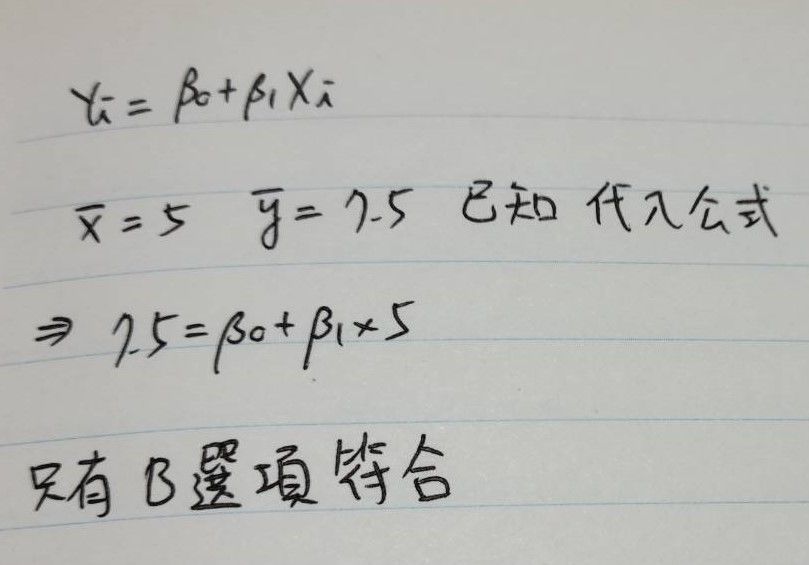 Yi = β0 + β1 Xi
x̄ = 5 ȳ = 7.5 已知 代入公式
⇒ 7.5 = β0 + β1 × 5
只有 B 選項 符合